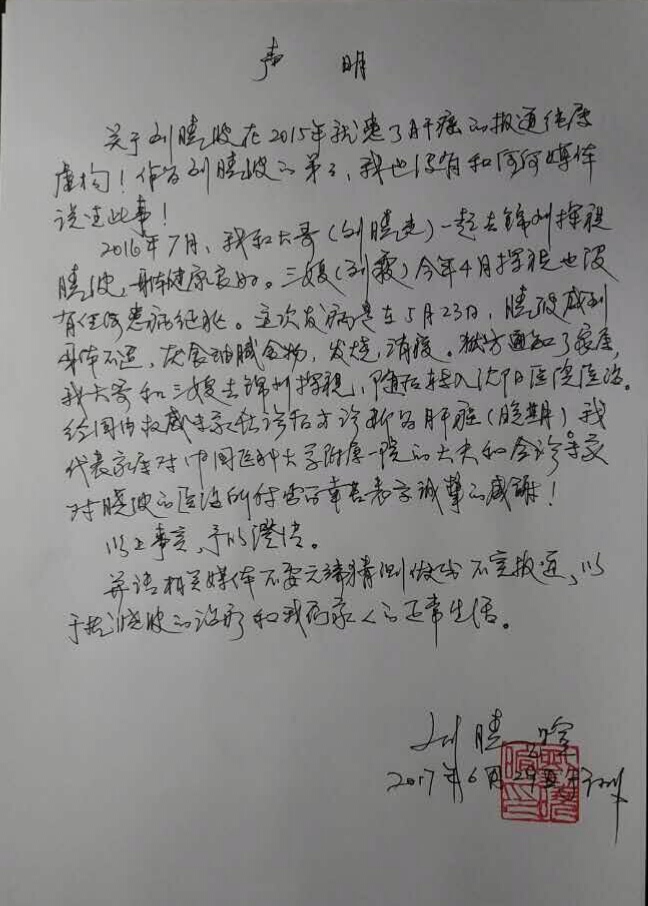 声 明
关于刘晓波在2015年就患了肝癌的报道纯属
虚构！作为刘晓波的弟弟，我也没有和任何媒体
说过此事！
2016年7月，我和大哥（刘晓光）一起去锦州探视
晓波，身体健康良好。三嫂（刘霞）今年4月探视也没
有任何患病征兆。这次发病是在5月23日，晓波感到
身体不适，厌食油腻食物，发烧，消瘦。狱方通知了家属，
我大哥和三嫂去锦州探视，随后转入沈阳医院医治。
经国内权威专家会诊后才诊断为肝癌（晚期）我
代表家属对中国医科大学附属一院的大夫和会诊专家
对晓波的医治所付出的辛苦表示诚挚的感谢！
以上事实，予以澄清。
并请相关媒体不要无端猜测做出不实报道，以
干扰晓波的治疗和我们家人的正常生活。
刘晓暄
2017年6月29日于